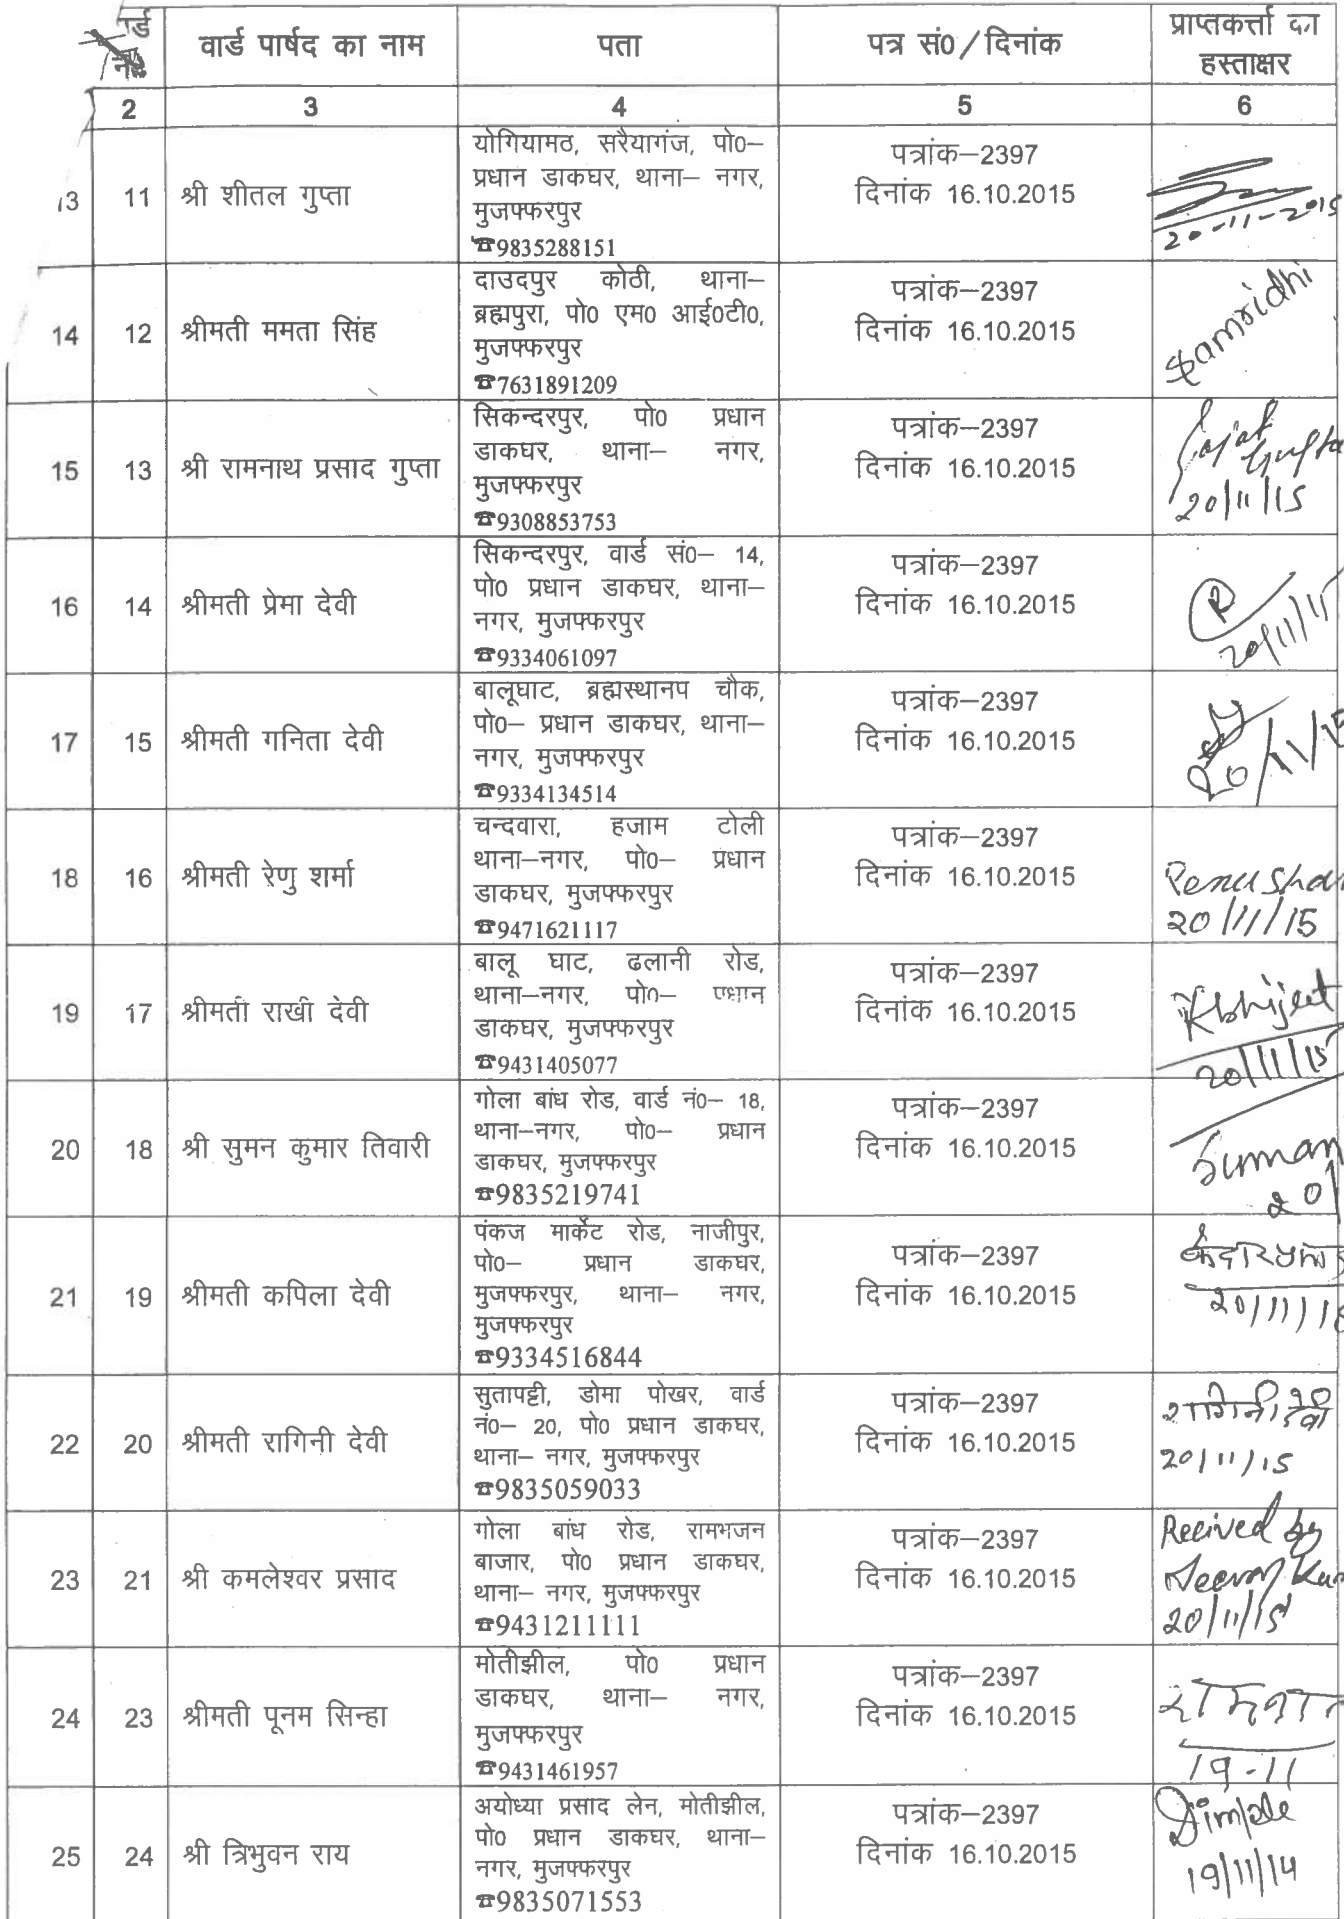 वार्ड पार्षद का नाम
पता
पत्र सं0/दिनांक
प्राप्तकर्त्ता का
हस्ताक्षर
2
3
4
5
6
13
11
श्री शीतल गुप्ता
योगियामठ, सरैयागंज, पो0–
प्रधान डाकघर, थाना– नगर,
मुजफ्फरपुर
☎9835288151
पत्रांक–2397
दिनांक 16.10.2015
20-11-2015
14
12
श्रीमती ममता सिंह
दाउदपुर कोठी, थाना–
ब्रह्मपुरा, पो0 एम0 आई0टी0,
मुजफ्फरपुर
☎7631891209
पत्रांक–2397
दिनांक 16.10.2015
Samridhi
15
13
श्री रामनाथ प्रसाद गुप्ता
सिकन्दरपुर, पो0 प्रधान
डाकघर, थाना– नगर,
मुजफ्फरपुर
☎9308853753
पत्रांक–2397
दिनांक 16.10.2015
Gupta
20/11/15
16
14
श्रीमती प्रेमा देवी
सिकन्दरपुर, वार्ड सं0– 14,
पो0 प्रधान डाकघर, थाना–
नगर, मुजफ्फरपुर
☎9334061097
पत्रांक–2397
दिनांक 16.10.2015
17
15
श्रीमती गनिता देवी
बालूघाट, ब्रह्मस्थानप चौक,
पो0– प्रधान डाकघर, थाना–
नगर, मुजफ्फरपुर
☎9334134514
पत्रांक–2397
दिनांक 16.10.2015
20/11/15
18
16
श्रीमती रेणु शर्मा
चन्दवारा, हजाम टोली
थाना–नगर, पो0– प्रधान
डाकघर, मुजफ्फरपुर
☎9471621117
पत्रांक–2397
दिनांक 16.10.2015
Renu
20/11/15
19
17
श्रीमती राखी देवी
बालू घाट, ढलानी रोड,
थाना–नगर, पो0– प्रधान
डाकघर, मुजफ्फरपुर
☎9431405077
पत्रांक–2397
दिनांक 16.10.2015
Abhijeet
20/11/15
20
18
श्री सुमन कुमार तिवारी
गोला बांध रोड, वार्ड नं0– 18,
थाना–नगर, पो0– प्रधान
डाकघर, मुजफ्फरपुर
☎9835219741
पत्रांक–2397
दिनांक 16.10.2015
Suman
20
21
19
श्रीमती कपिला देवी
पंकज मार्केट रोड, नाजीपुर,
पो0– प्रधान डाकघर,
मुजफ्फरपुर, थाना– नगर,
मुजफ्फरपुर
☎9334516844
पत्रांक–2397
दिनांक 16.10.2015
22
20
श्रीमती रागिनी देवी
सुतापट्टी, डोमा पोखर, वार्ड
नं0– 20, पो0 प्रधान डाकघर,
थाना– नगर, मुजफ्फरपुर
☎9835059033
पत्रांक–2397
दिनांक 16.10.2015
रागिनी देवी
20/11/15
23
21
श्री कमलेश्वर प्रसाद
गोला बांध रोड, रामभजन
बाजार, पो0 प्रधान डाकघर,
थाना– नगर, मुजफ्फरपुर
☎9431211111
पत्रांक–2397
दिनांक 16.10.2015
Recived by
20/11/15
24
23
श्रीमती पूनम सिन्हा
मोतीझील, पो0 प्रधान
डाकघर, थाना– नगर,
मुजफ्फरपुर
☎9431461957
पत्रांक–2397
दिनांक 16.10.2015
19-11
25
24
श्री त्रिभुवन राय
अयोध्या प्रसाद लेन, मोतीझील,
पो0 प्रधान डाकघर, थाना–
नगर, मुजफ्फरपुर
☎9835071553
पत्रांक–2397
दिनांक 16.10.2015
Dimple
19/11/14